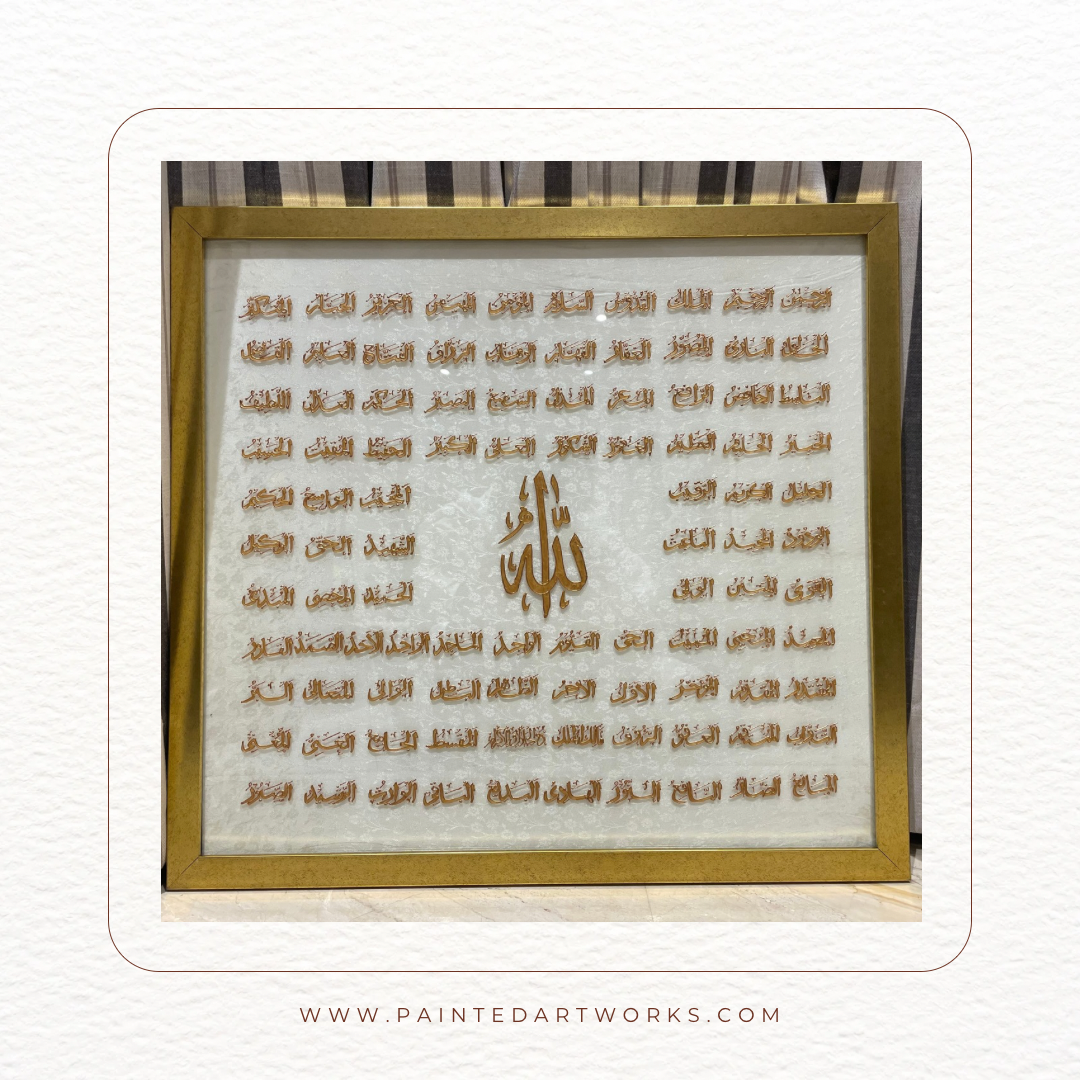 الرحمن الرحيم الملك القدوس السلام المؤمن المهيمن العزيز الجبار المتكبر
الخالق البارئ المصور الغفار القهار الوهاب الرزاق الفتاح العليم القابض
الباسط الخافض الرافع المعز المذل السميع البصير الحكم العدل اللطيف
الخبير الحليم العظيم الغفور الشكور العلي الكبير الحفيظ المقيت الحسيب
الجليل الكريم الرقيب المجيب الواسع الحكيم
الله
الودود المجيد الباعث الشهيد الحق الوكيل
القوي المتين الولي الحميد المحصي المبدئ
المعيد المحيي المميت الحي القيوم الواجد الماجد الواحد الاحد الصمد القادر
المقتدر المقدم المؤخر الاول الاخر الظاهر الباطن الوالي المتعالي البر
التواب المنتقم العفو الرؤوف مالك الملك ذو الجلال والاكرام المقسط الجامع الغني المغني
المانع الضار النافع النور الهادي البديع الباقي الوارث الرشيد الصبور
WWW.PAINTEDARTWORKS.COM